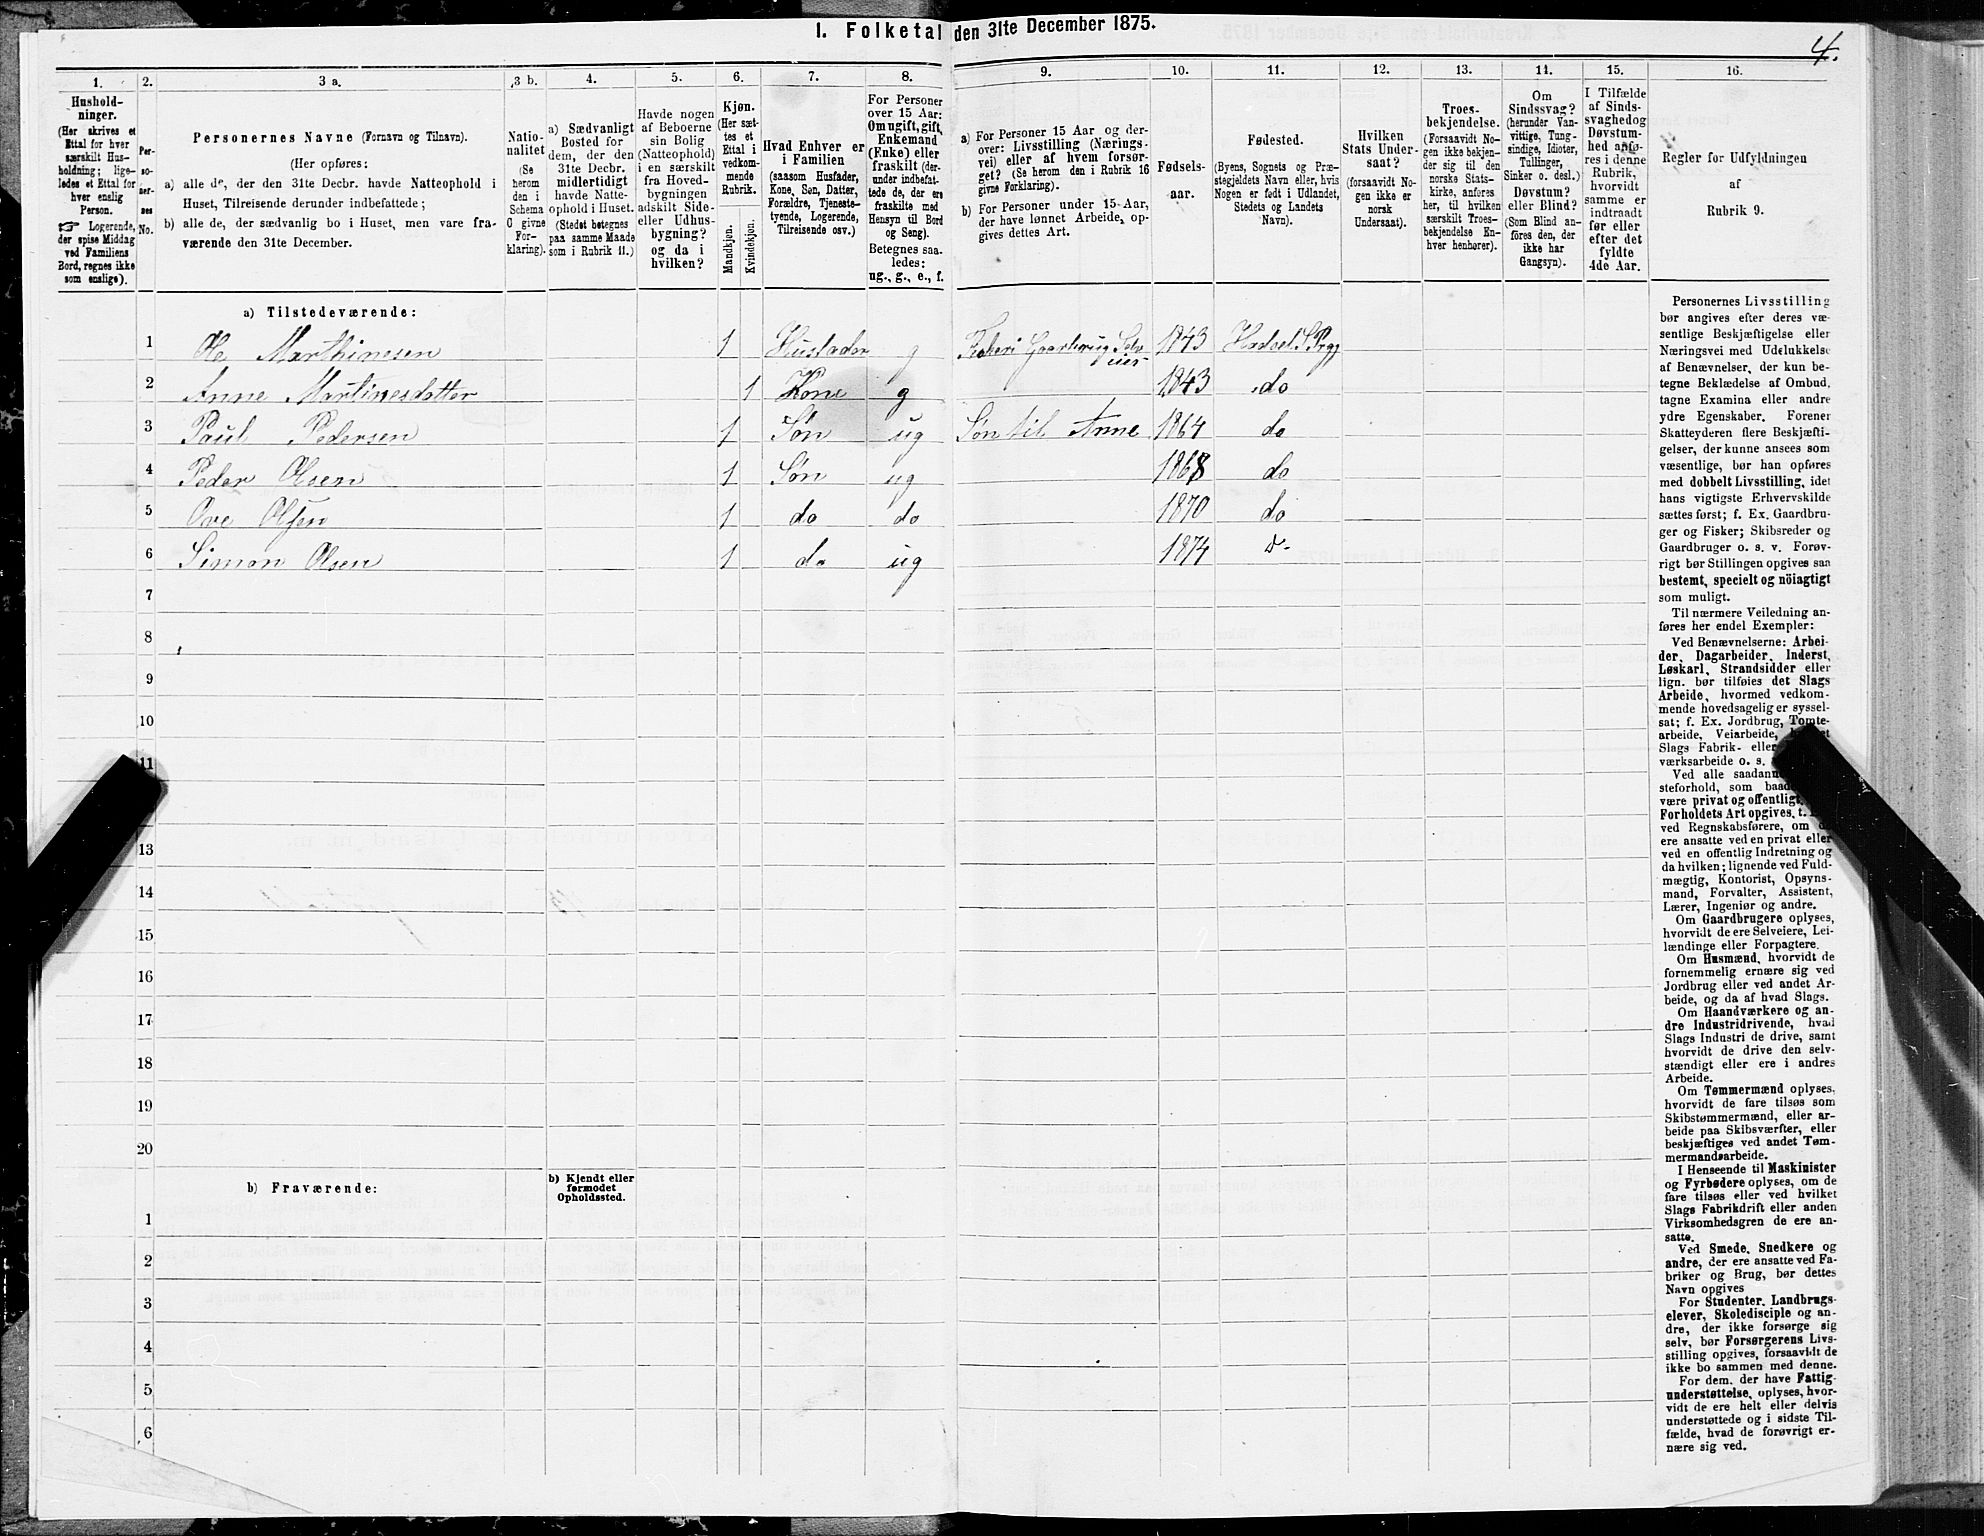 I. Folketal den 31te December 1875.
4.
1.
Hushold-
ninger.
(Her skrives et
Ettal for hver
særskilt Hus-
holdning; lige-
ledes et Ettal for
hver enslig
Person.
☞ Logerende,
der spise Middag
ved Familiens
Bord, regnes ikke
som enslige).
2.
Per-
so-
ner-
nes
No.
3 a.
Personernes Navne (Fornavn og Tilnavn).
(Her opføres:
a) alle de, der den 31te Decbr. havde Natteophold i
Huset, Tilreisende derunder indbefattede;
b) alle de, der sædvanlig bo i Huset, men vare fra-
værende den 31te December.
3 b.
Natio-
nalitet
(Se
herom
den i
Schema
C givne
For-
klaring).
4.
a) Sædvanligt
Bosted for
dem, der den
31te Decbr.
midlertidigt
havde Natte-
ophold i Huset.
(Stedet betegnes
paa samme Maade
som i Rubrik 11.)
5.
Havde nogen
af Beboerne
sin Bolig
(Natteophold)
i en særskilt
fra Hoved-
bygningen
adskilt Side-
eller Udhus-
bygning?
og da i
hvilken?
6.
Kjøn.
(Her sæt-
tes et
Ettal i
vedkom-
mende
Rubrik.
Mandkjøn.
Kvindekjøn.
7.
Hvad Enhver er
i Familien
(saasom Husfader,
Kone, Søn, Datter,
Forældre, Tjeneste-
tyende, Logerende,
Tilreisende osv.)
8.
For Personer
over 15 Aar:
Om ugift, gift,
Enkemand
(Enke) eller
fraskilt (der-
under indbefat-
tede de, der ere
fraskilte med
Hensyn til Bord
og Seng).
Betegnes saa-
ledes:
ug., g., e., f.
9.
a) For Personer 15 Aar og der-
over: Livsstilling (Nærings-
vei) eller af hvem forsør-
get? (Se herom den i Rubrik 16
givne Forklaring).
b) For Personer under 15-Aar,
der have lønnet Arbeide, op-
gives dettes Art.
10.
Fødsels-
aar.
11.
Fødested.
(Byens, Sognets og Præ-
stegjeldets Navn eller, hvis
Nogen er født i Udlandet,
Stedets og Landets
Navn).
12.
Hvilken
Stats Under-
saat?
(forsaavidt No-
gen ikke er
norsk
Undersaat).
13.
Troes-
bekjendelse.
(Forsaavidt No-
gen ikke bekjen-
der sig til den
norske Stats-
kirke, anføres
her, til hvilken
særskilt Troes-
bekjendelse En-
hver henhører).
14.
Om
Sindssvag?
(herunder Van-
vittige, Tung-
sindige, Idioter,
Tullinger,
Sinker o. desl.)
Døvstum?
eller Blind?
(Som Blind an-
føres den, der
ikke har
Gangsyn).
15.
I Tilfælde
af Sinds-
svaghed og
Døvstum-
hed anfø-
res i denne
Rubrik,
hvorvidt
samme er
indtraadt
før eller
efter det
fyldte
4de Aar.
16.
Regler for Udfyldningen
af
Rubrik 9.
a) Tilstedeværende:
1 Ole Marthinesen 1 Husfader g Fiskeri Gaardbrug Selv
eier 1843 Hadsel Prg
2 Anne Martinesdatter 1 Kone g 1843 do
3 Paul Pedersen 1 Søn ug Søn til Anne 1864 do
4 Peder Olsen 1 Søn ug 1868 do
5 Ove Olsen 1 do do 1870 do
6 Simon Olsen 1 do ug 1874 d-
7
8
9
10
11
13
14
15
16
17
18
19
20
b) Fraværende:
b) Kjendt eller
formodet
Opholdssted.
1
2
3
4
5
6
Personernes Livsstilling
bør angives efter deres væ-
sentlige Beskjæftigelse eller
Næringsvei med Udelukkelse
af Benævnelser, der kun be-
tegne Beklædelse af Ombud,
tagne Examina eller andre
ydre Egenskaber. Forener
Skatteyderen flere Beskjæfti-
gelser, der kunne ansees som
væsentlige, bør han opføres
med dobbelt Livsstilling, idet
hans vigtigste Erhvervskilde
sættes først; f. Ex. Gaardbru-
ger og Fisker; Skibsreder og
Gaardbruger o. s. v. Forøv-
rigt bør Stillingen opgives saa
bestemt, specielt og nöiagtigt
som muligt.
Til nærmere Veiledning an-
føres her endel Exempler:
Ved Benævnelserne: Arbei-
der, Dagarbeider, Inderst,
Løskarl, Strandsidder eller
lign. bør tilføies det Slags
Arbeide, hvormed vedkom-
mende hovedsagelig er syssel-
sat; f. Ex. Jordbrug, Tomte-
arbeide, Veiarbeide,
Slags Fabrik- eller
værksarbeide o. s.
Ved alle saadanne
steforhold, som
være privat og offentligt,
Forholdets Art opgives,
ved Regnskabsførere, om
ere ansatte ved en privat eller
ved en offentlig Indretning og
da hvilken; lignende ved Fuld-
mægtig, Kontorist, Opsyns-
mand, Forvalter, Assistent,
Lærer, Ingeniør og andre.
Om Gaardbrugere oplyses,
hvorvidt de ere Selveiere, Lei-
lændinge eller Forpagtere.
Om Husmænd, hvorvidt de
fornemmelig ernære sig ved
Jordbrug eller ved andet Ar-
beide, og da af hvad Slags.
Om Haandværkere og an-
dre Industridrivende, hvad
Slags Industri de drive, samt
hvorvidt de drive den selv-
stændigt eller ere i andres
Arbeide.
Om Tømmermænd oplyses,
hvorvidt de fare tilsøs som
Skibstømmermænd, eller ar-
beide paa Skibsværfter, eller
beskjæftiges ved andet Tøm-
mermandsarbeide.
I Henseende til Maskinister
og Fyrbødere oplyses, om de
fare tilsøs eller ved hvilket
Slags Fabrikdrift eller anden
Virksomhedsgren de ere an-
satte.
Ved Smede, Snedkere og
andre, der ere ansatte ved Fa-
briker og Brug, bør dettes
Navn opgives
For Studenter, Landbrugs-
elever, Skoledisciple og an-
dre, der ikke forsørge sig
selv, bør Forsørgerens Livs-
stilling opgives, forsaavidt de
ikke bo sammen med denne.
For dem, der have Fattig-
understøttelse, oplyses, hvor-
vidt de ere helt eller delvis
understøttede og i sidste Til-
fælde, hvad de forøvrigt er-
nære sig ved.